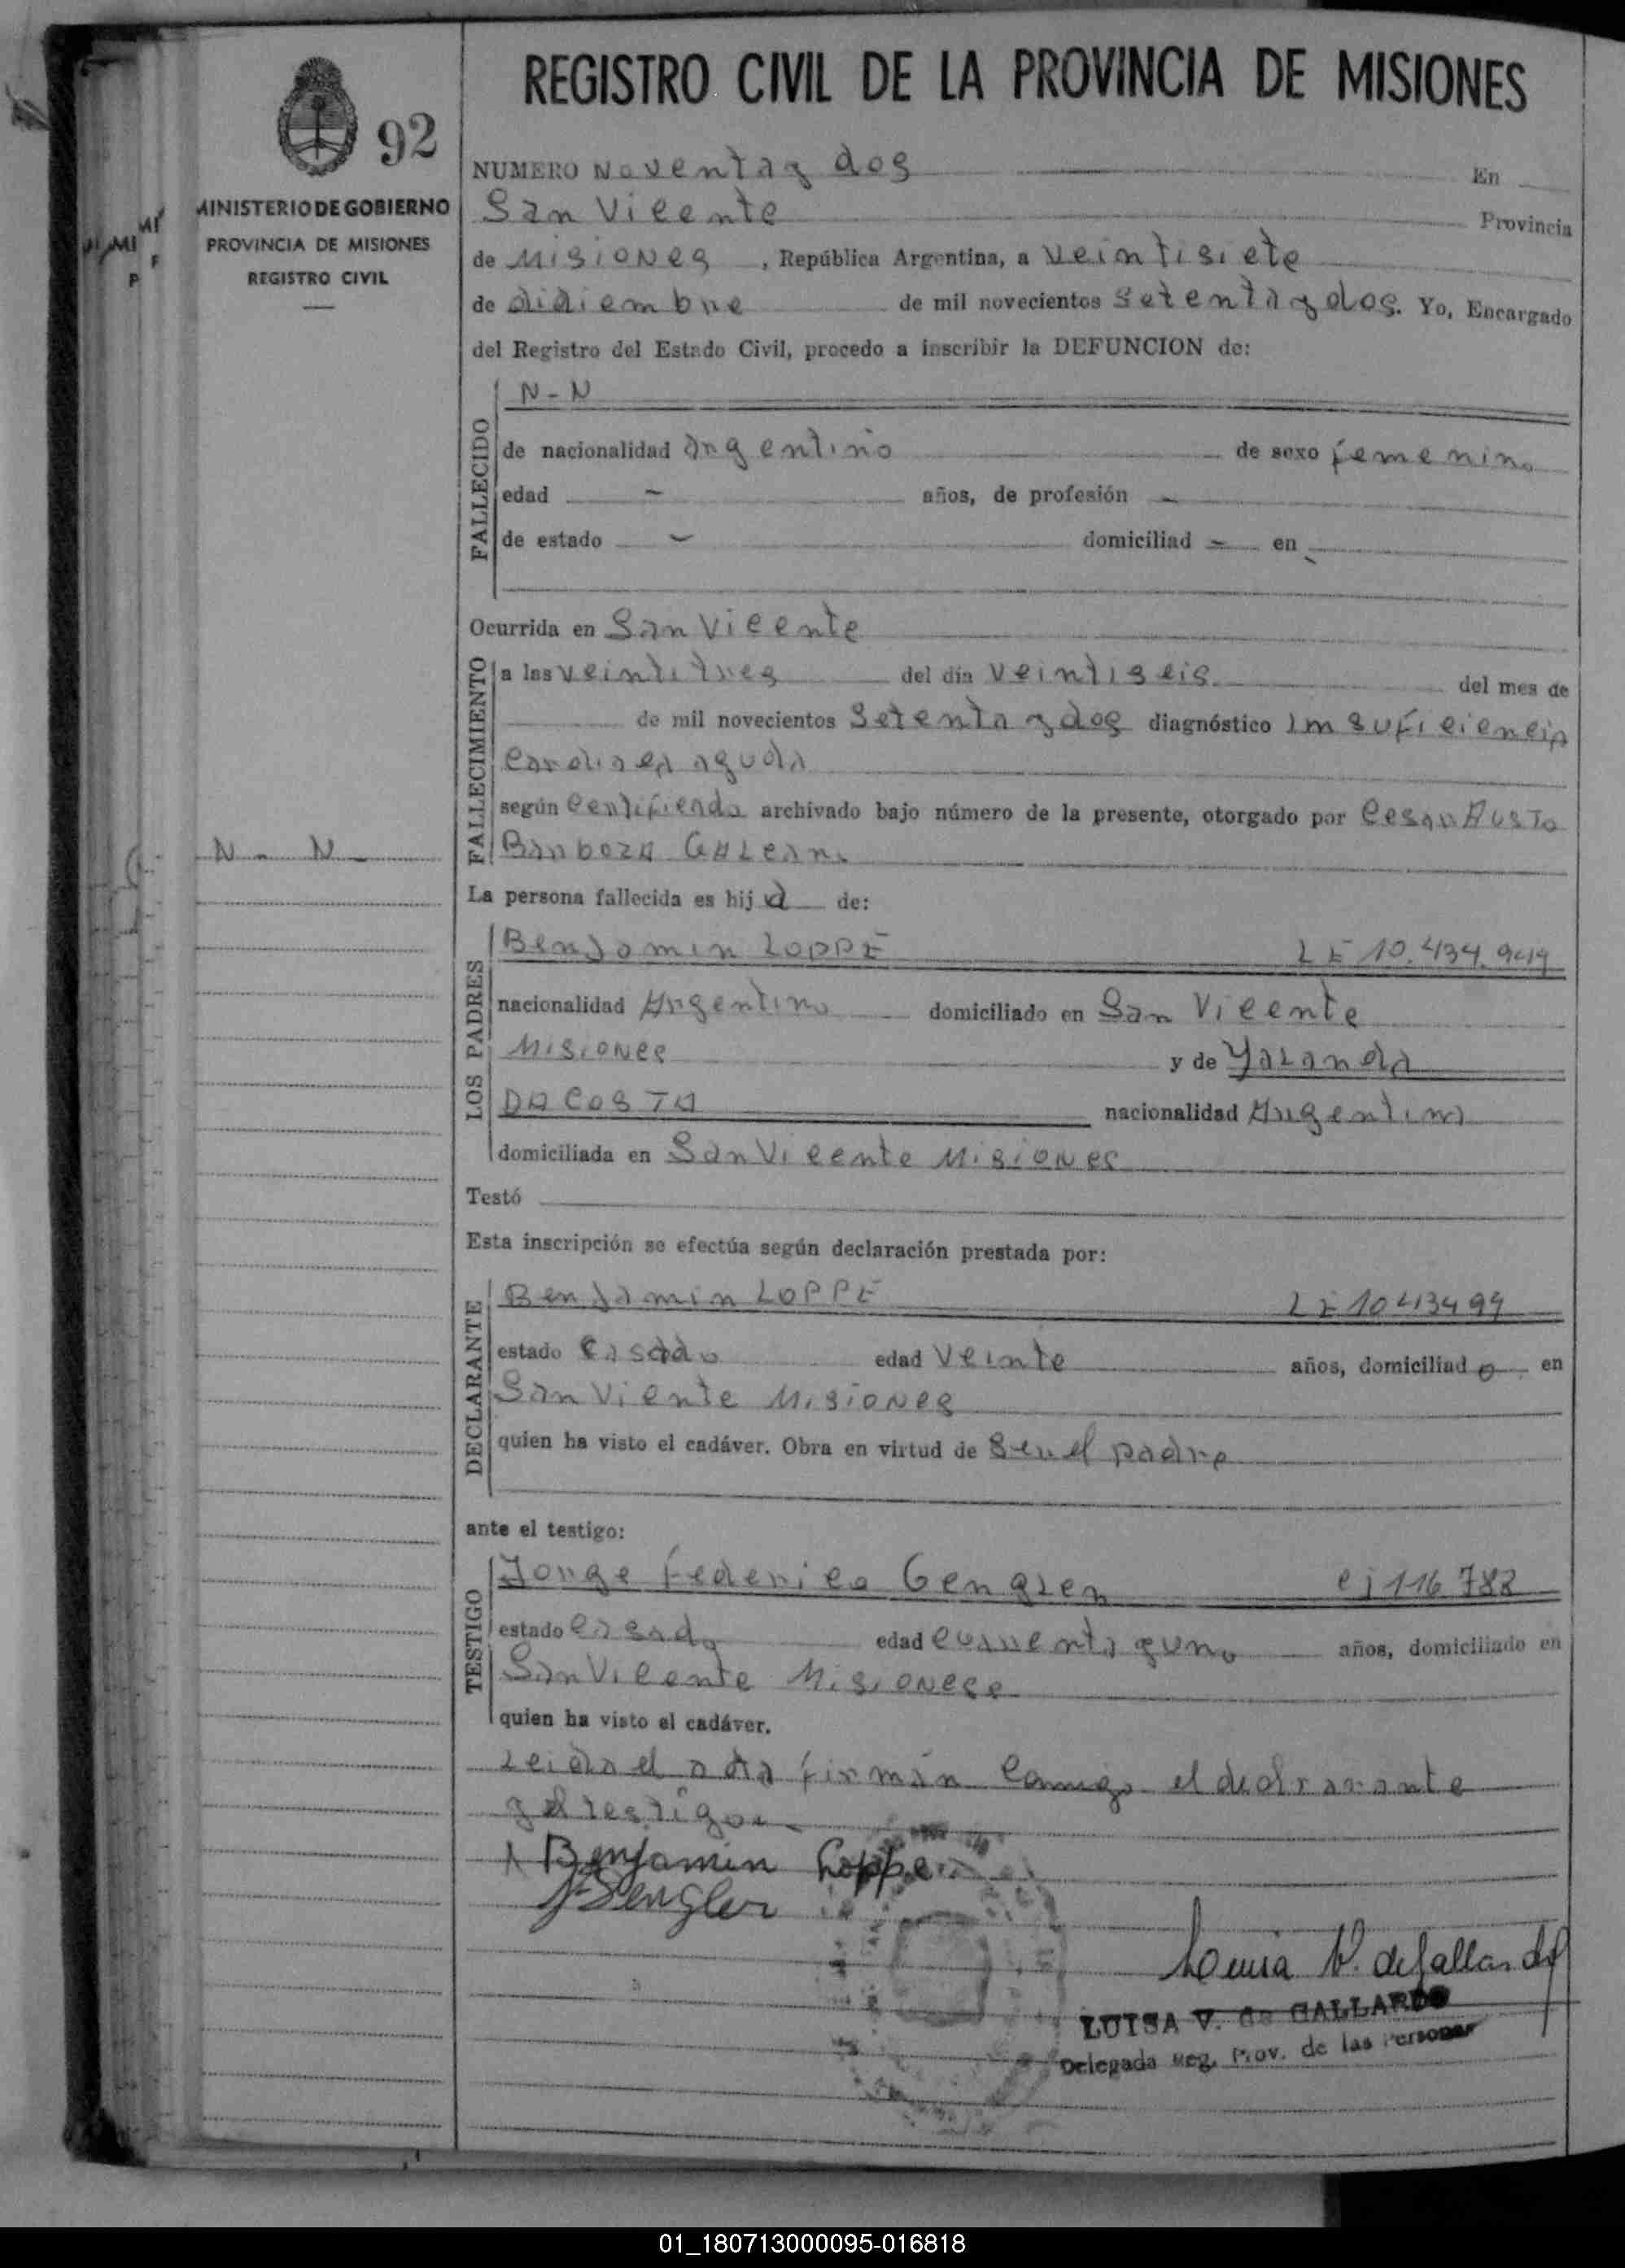 REGISTRO CIVIL DE LA PROVINCIA DE MISIONES
92
MINISTERIO DE GOBIERNO
PROVINCIA DE MISIONES
REGISTRO CIVIL
NUMERO Noventa y dos En
San Vicente Provincia
de Misiones, República Argentina, a veintisiete
de didiembre de mil novecientos setenta y dos. Yo, Encargado
del Registro del Estado Civil, procedo a inscribir la DEFUNCION de:
FALLECIDO
N-N
de nacionalidad argentino de sexo femenino
edad - años, de profesión -
de estado - domiciliad - en
Ocurrida en San Vicente
FALLECIMIENTO
a las veintitres del día veintiseis del mes de
de mil novecientos setenta y dos diagnóstico imsuficiencia
cardiaca aguda
según certificado archivado bajo número de la presente, otorgado por Cesar Austo
Barboza Galeano
N - N -
La persona fallecida es hija de:
LOS PADRES
Benjamin LOPPE LE 10.434.949
nacionalidad Argentino domiciliado en San Vicente
Misiones y de Yolanda
DA COSTA nacionalidad Argentina
domiciliada en San Vicente Misiones
Testó
Esta inscripción se efectúa según declaración prestada por:
DECLARANTE
Benjamin LOPPE LE 1043499
estado casado edad veinte años, domiciliado en
San Viente Misiones
quien ha visto el cadáver. Obra en virtud de ser el padre
ante el testigo:
TESTIGO
Jorge Federico Gengler ci 116 782
estado casado edad cuarenta y uno años, domiciliado en
San Vicente Misiones
quien ha visto el cadáver.
Leida el acta firman conmigo el declarante
y el testigo
Benjamin Loppe
Gengler
Luisa V. de Gallardo
LUISA V. de GALLARDO
Delegada Reg. Prov. de las Personas
01_180713000095-016818